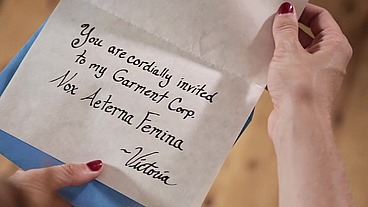 You are cordially invited
to my Garment Corp.
Nox Aeterna Femina
~Victoria